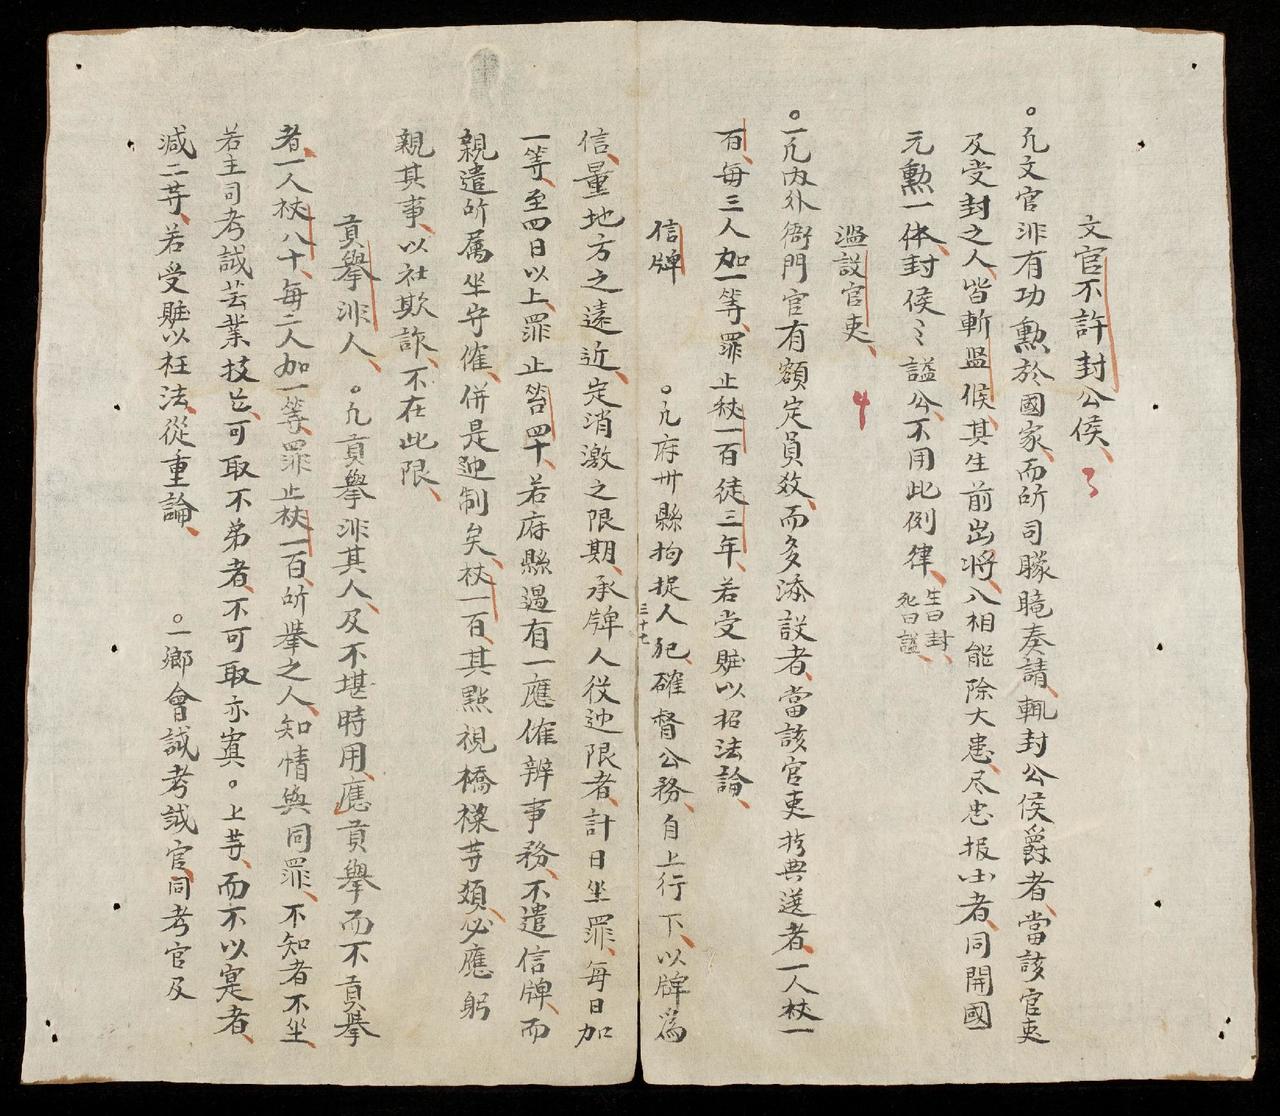 文官不許封公侯 3
凡文官非有功勲於國家而所司朦朧奏請輒封公侯爵者當該官吏
及受封之人皆斬監候其生前出將入相能除大患尽忠报国者同開國
元勲一体封侯〻謚公不用此例律
生曰封
死曰謚
濫設官吏 4
一凡内外衙門官有額定員数而多添設者當該官吏典選者一人杖一
百每三人加一等罪止杖一百徒三年若受賍以招法論
信牌 凡府州縣拘捉人犯確督公務自上行下以牌爲
三十七
信量地方之遠近定消激之限期承牌人役迯限者計日坐罪每日加
一等至四日以上罪止笞四十若府縣遇有一應催辨事務不遣信牌而
親遣所属坐守催併是迎制矣杖一百其點視橋樑䓁類必應躬
親其事以社欺詐不在此限
貢舉非人 凡貢舉非其人及不堪時用應貢舉而不貢舉
者一人杖八十每二人加一等罪止杖一百所舉之人知情與同罪不知者不坐
若主司考試芸業技芸可取不弟者不可取亦寘上䓁而不以寔者
减二䓁若受賍以枉法從重論 一鄉會試考試官同考官及